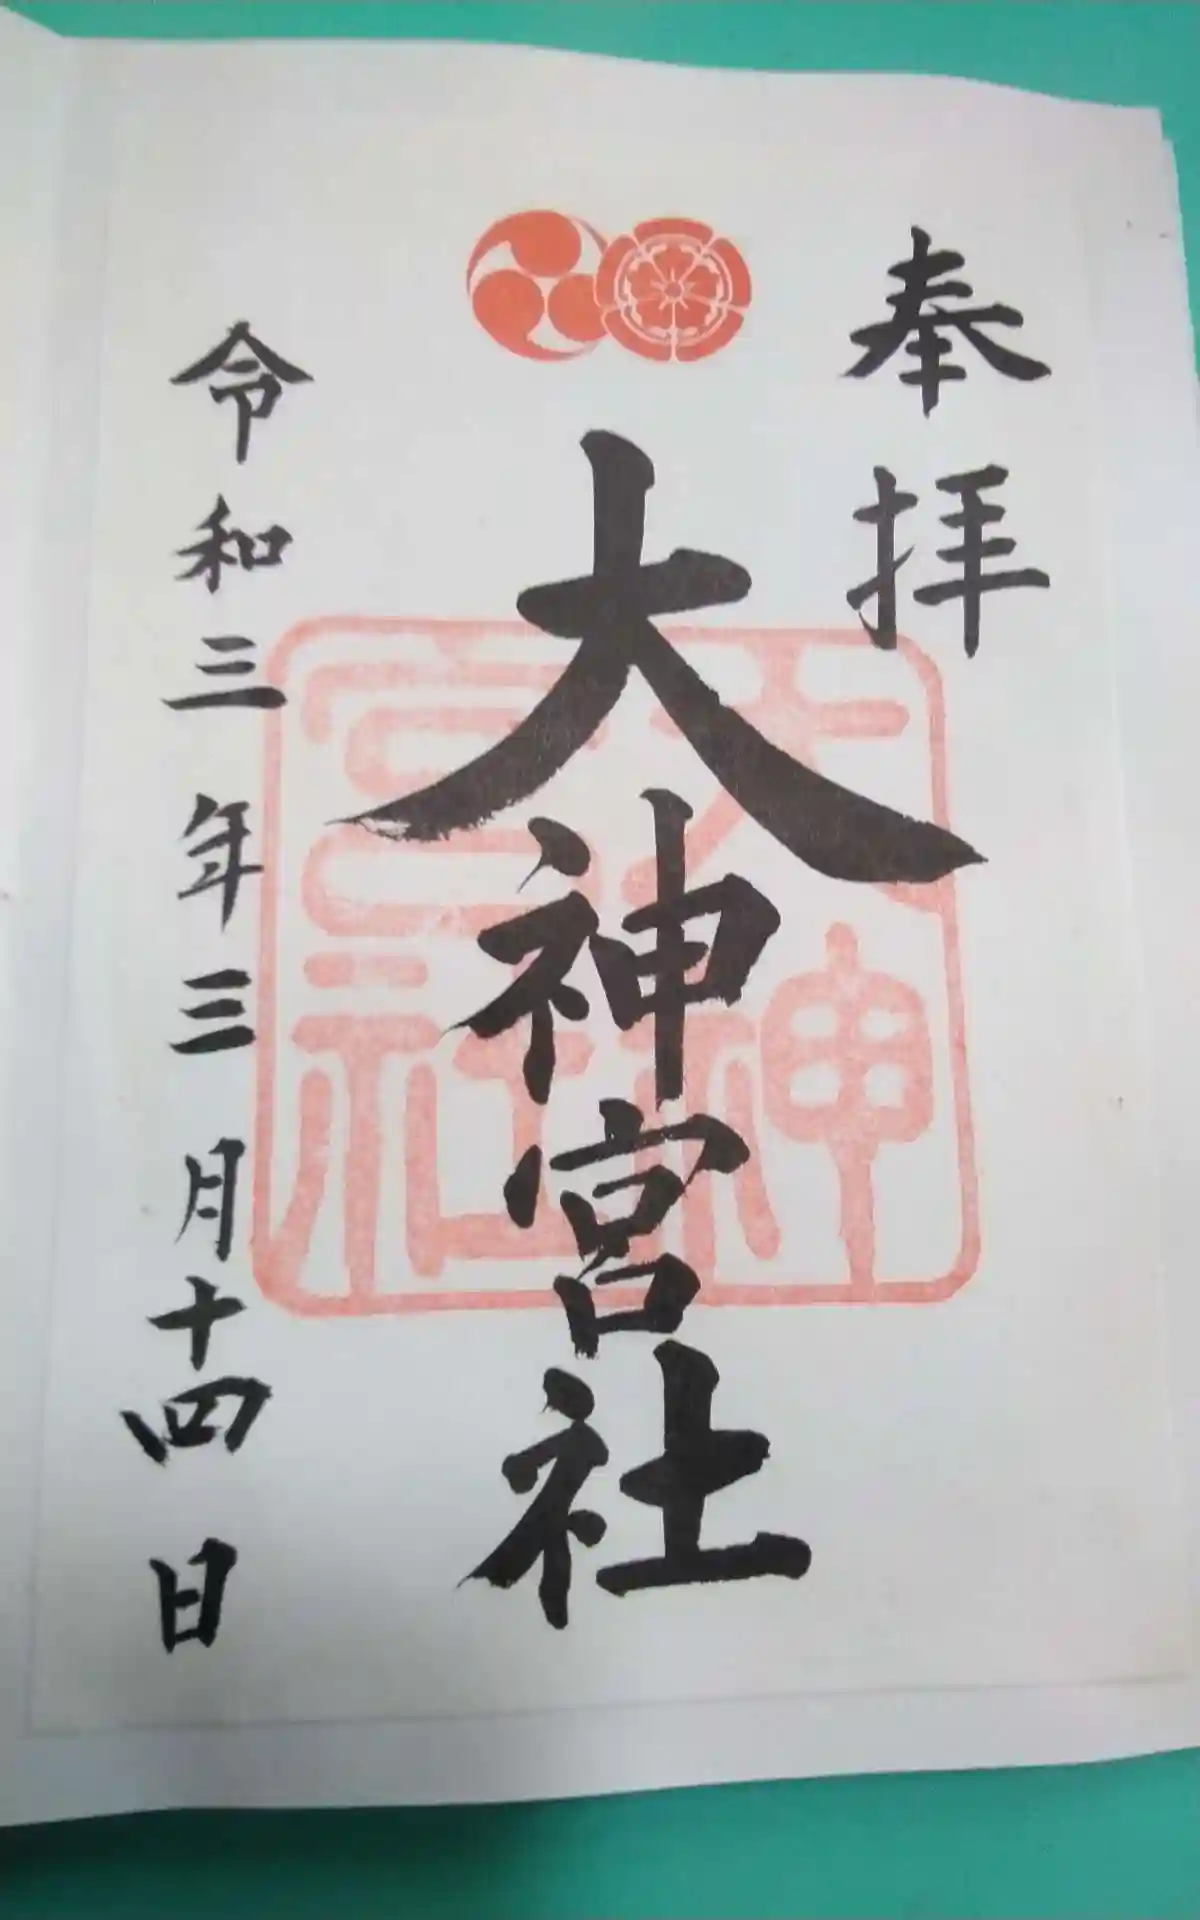 奉拝
大神宮社
大神宮社
令和三年三月十四日